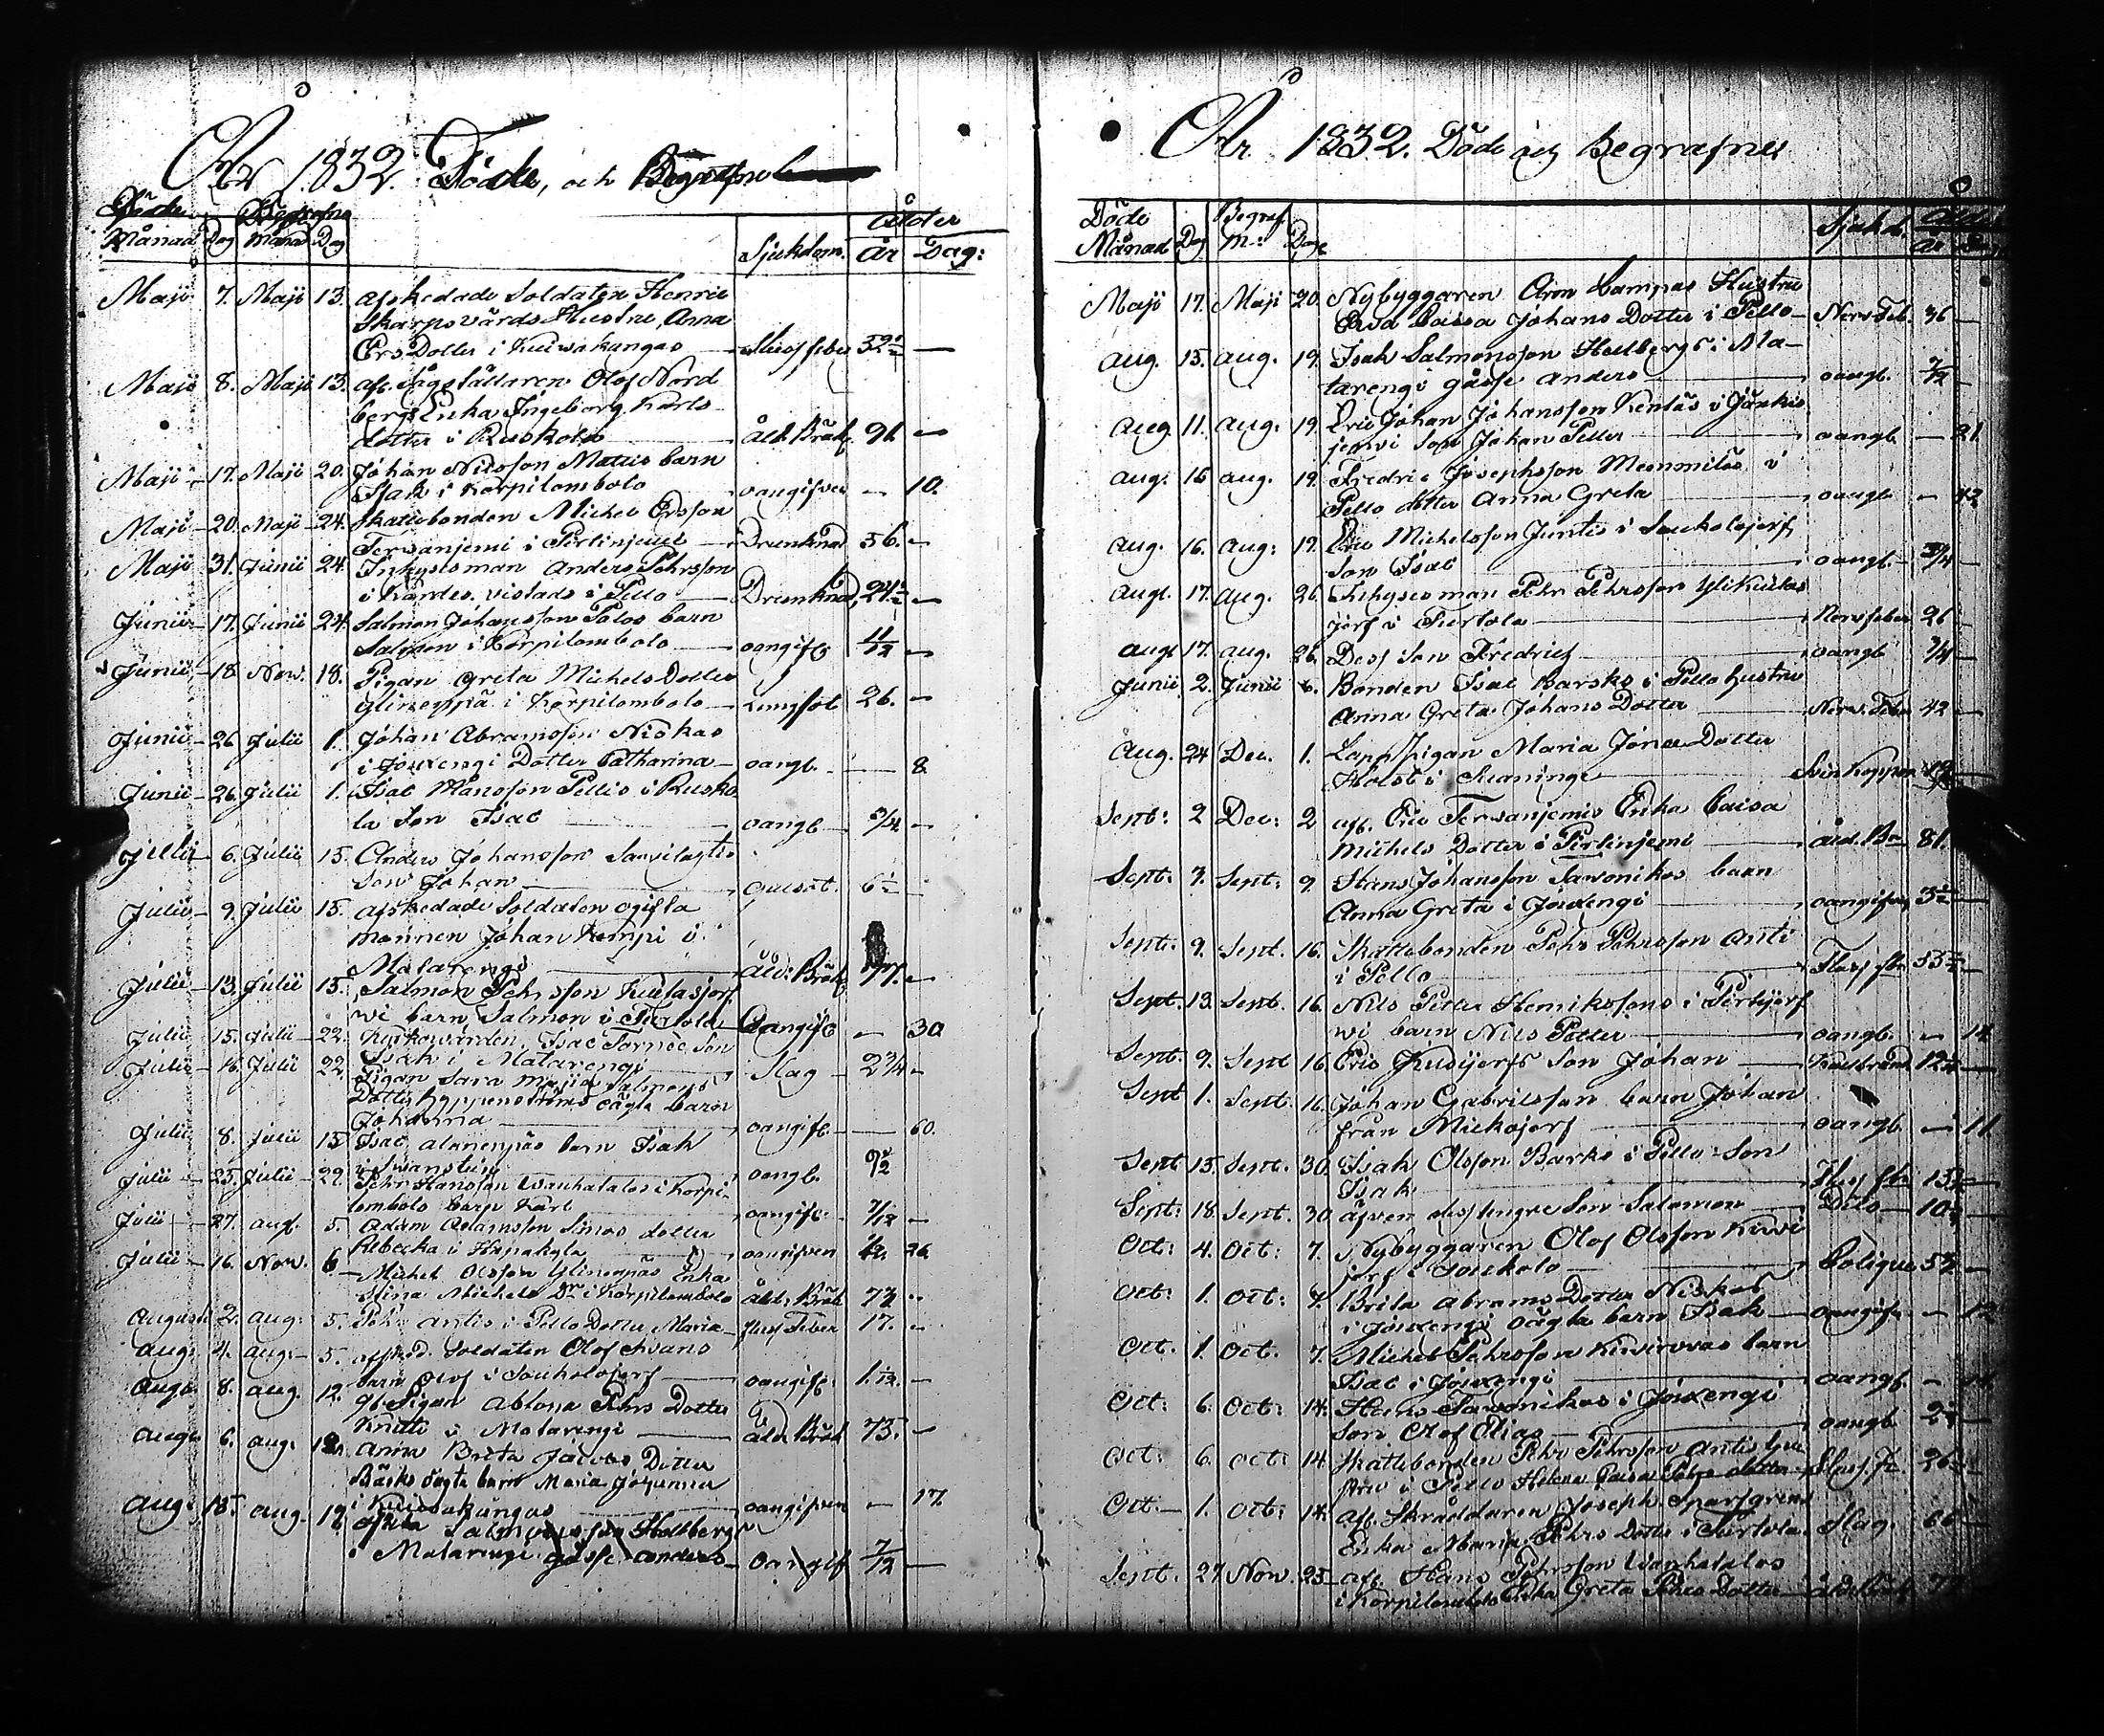 År 1832. Döde, och Begrafne
Döde Begrafne Ålder
Månad Dag Månad Dag Sjukdom. År Dag:
Maji 7. Maji 13. Afskedade Soldaten Henric
Skarpsvärds Hustru, Anna
Ers Dotter i Kuivakangas — feber 52 1/2 —
Maji 8. Maji 13. afl. Sågställaren Olof Nord
bergs Enka Ingeborg Karls
dotter i Ruskola — Åld. Bräk. 91 —
Maji — 17. Maji 20. Johan Nilsson Mattis barn
Isak i Korpilombolo oangifven — 10.
Maji — 20. Maji — 24. Skattebonden Michel Ersson
Tervaniemi i Pirtiniemi — Drunknad 56. —
Maji 31. Junii 24. Inhysesman Anders Pehrsson
i Kardis, vistads i Pello — Drunknad, 24 1/2 —
Junii — 17. Junii 24. Salmon Johansson Palos barn
Salmon i Korpilombolo — oangifv 11/12 —
Junii — 18. Nov. 18. Pigan Greta Michels Dotter
Ylinenpä i Korpilombolo — Lungsot 26. —
Junii — 26 Julii 1. Johan Abramsson Niskas
i Jouxengi Dotter Catharina — oangf. — 8.
Junii — 26. Julii 1. Isac Månsson Pellis i Rusko
la Son Isac — oangf. — 3/4 —
Julii — 6. Julii 15. Anders Johansson
Son Johan — Gulsot. 6 1/2 —
Julii — 9. Julii 15. Afskedade Soldaten ogifta
mannen Johan Kempi i
Matarengi — Åld: Bräk 77. —
Julii — 13. Julii 15. Salmon Pehrsson Kuitasjerf
wi barn Salmon i Turtola — Oangifv — 30.
Julii 15. Julii — 22. Kyrkowärden, Isac Tornéc Son
Isak i Matarengi — Slag — 2 3/4 —
Julii — 16. Julii 22 Pigan Sara Maja Salmons
Dotter Koppenströms oägta barn
Johanna — oangifv. — 60.
Julii 8. Julii 15 Isac Alanenpäs barn Isak
i Svanstein oangb.
Julii — 25. Julii — 29. Pehr Hansson Wanhatalos i Korpi-
lombolo barn Karl — oangifv: 7/12 —
Julii — 27. Augl. 5. Adam Adamsson Simos dotter
Rebecka i Haapakyla — oangifven 26
Julii — 16. Nov. 6 — Michel Olsson Ylinenpäs Enka
Stina Michels Dr. i Korpilombolo Åld: Bräk 73 —
Augusti 2. Aug. 5. Pehr Antis i Pello Dotter Maria — Feber 17. —
Aug. 4. Aug. — 5. afsked. Soldaten Olof Svans
barn Olof i Soukolojerf — oangifv. 1 1/12. —
Augs. 8. Aug. 12. gl. Pigan Ablona Pehrs Dotter
Knitti i Matarengi — Åld. Bräk 73. —
Augs. 6. Aug. 12. Anna Brita Jacobs Dotter
Bäcks oägta barn Maria Johanna
i Kuivakangas — oangifven — 17.
Aug. 15. Aug. 19. Isak Salmonsson Hallbergs
i Matarengi gosse Anders — oangif 7/12 —
År 1832. Döde och Begrafne
Döde Begraf. Sjukd. Ålder
Månad Dag M: Dag År
Maji 17. Maji 20. Nybyggaren Aron Lampas Hustru
Caisa Johans Dotter i Pello — Nerv Feb. 36 —
Aug. 15. Aug. 19. Isak Salmonsson Hallbergs i Ma-
tarengi gosse Anders — oangf. 7/12 —
Aug. 11. Aug. 19. Eric Johan Johansson Kentäs i Jänkis
jerwi Son Johan Petter — oangb. — 21.
Aug. 16 Aug. 19. Fredric Josephsson Memmiläs i
Pello dotter Anna Greta — oangb. — 42
Aug. 16. Aug: 19. Eric Michelsson Juntis i Soukolojerf
Son Isac — oangb. — 3/4 —
Augl. 17. Aug. 26. Inhyses man Pehr Pehrsson Ylikuitas
jerf i Turtola — Nervfeber 26
Augl 17. Aug. 26. Dess Son Fredric — oangb 3/4 —
Junii 2. Junii Bonden Isac Barsks i Pello hustru
Anna Greta Johans Dotter — Nerv. Feber 42 —
Aug. 24 Dec. 1. Lapp Pigan Maria Jöns Dotter
Holst i — Svinkoppor
Sept: 2 Dec: 2 afl. Eric Tervaniemis Enka Caisa
Michels Dotter i Pirtiniemi — Åld. Br. 81.
Sept: 7. Sept: 9. Hans Johansson Tawonikos barn
Anna Greta i Jouxengi — oangifven 3 1/2 —
Sept: 9. Sept. 16. Skattebonden Pehr Pehrsson Anti
i Pello — 55 1/2 —
Sept. 13. Sept. 16. Nils Petter Henrikssons i Pirtijerf
wi barn Nils Petter — oangb. — 14.
Sept: 9. Sept 16. Eric Kuusijerfs Son Johan — Kallbrand 12 —
Sept 1. Sept. 16. Johan Gabrielsson barn Johan
från Miekojerf — oangb. — 11.
Sept 15. Sept. 30. Isak Olsson Barks i Pello Son
Isak — 13 —
Sept: 18. Sept. 30 äfven dess yngre Son Salomon — Dito — 10 —
Oct: 4. Oct: 7. Nybyggaren Olof Olsson Kuusi
jerf i Soukolo — Colique 53 —
Oct: 1. Oct: 7. Brita Abrams Dotter Niskas
i Jouxengi oägta barn Isak — oangifv. — 12
Oct. 1. Oct. 7. Michel Pehrsson Kivirovas barn
Isac i Jouxengi — oangf. —
Oct: 6. Oct: 14. Hans Tawonikos i Jouxengi
Son Olof Elias — oangb. 2 —
Oct: 6. Oct: 14. Skattebonden Pehr Pehrsson Antis hu
stru i Pello Helena Caisa Pehrs dotter — 26 —
Oct. — 1. Oct: 14. afl. Skräddaren Joseph Sparfgrens
Enka Maria Pehrs Dotter i Turtola. Slag. 66 —
Sept. 27. Nov. 25 — afl. Hans Pehrsson Wanhatalos
i Korpilombolo Enka Greta Pehrs Dotter —